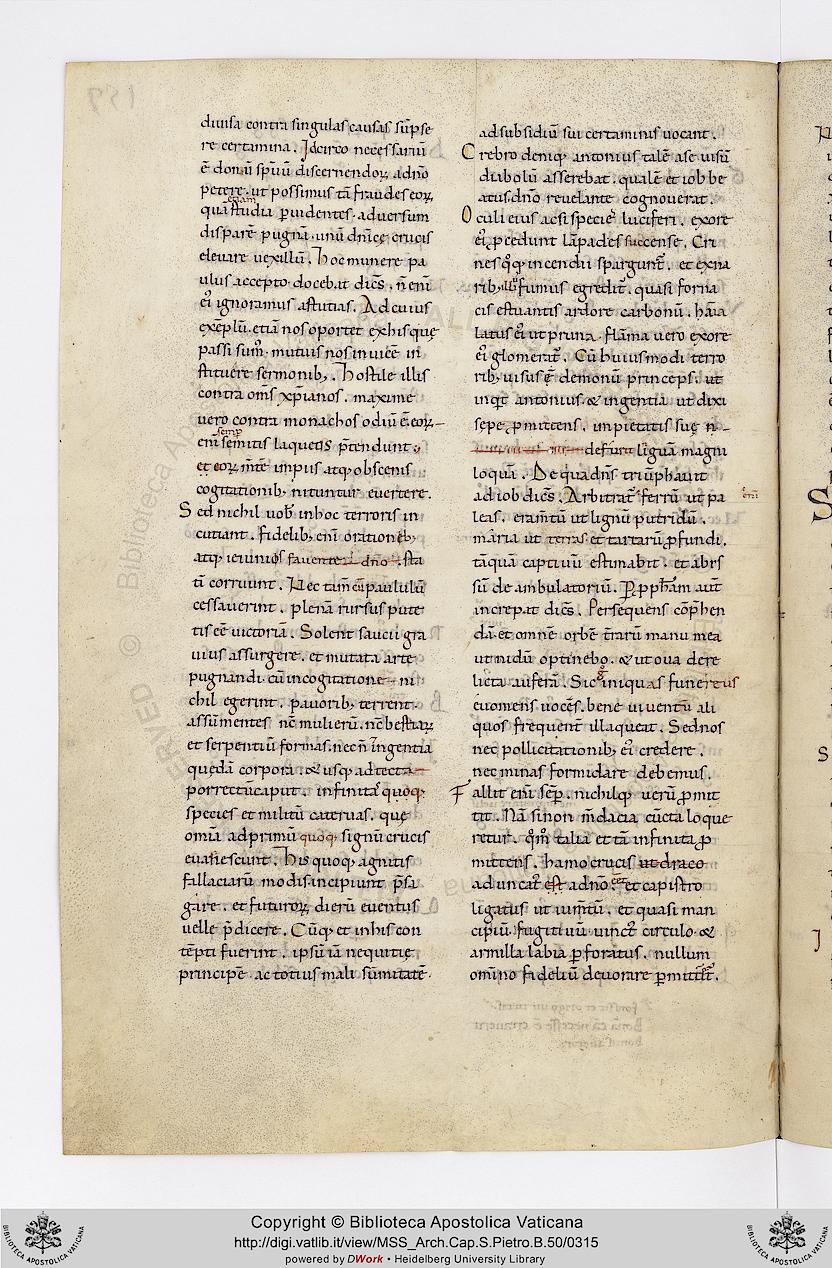 diuisa contra singulas causas sūpse
re certamina. Idcirco necessariū
ē donū spūū discernendoꝝ, ad dno
petere. ut possimus tā fraudes eoꝝ,
quā studia puidentes. aduersum
etiam
dispare pugnā. unū dnicę crucis
eleuare uexillū. Hoc munere pa
ulus accepto docebat dices. n̄ enī
ei ignoramus astutias. Ad cuius
exēplū. etiā nos oportet ex his que
passi sum. mutuis nos inuicē in
stituere sermonib;. Hostile illis
contra oms xp̄ianos. maxime
uero contra monachos odiū ē. eoꝝ
enī semitis laqueos p̄tendunt.
semp
et eoꝝ m̄te impiis atq; obscenis
cogitationib; nituntur euertere.
Sed nichil uob in hoc terroris in
cutiant. fidelib; enī orationib;
atq; ieiuniis fauente dno. sta
tī corruunt. Nec tam̄ cū paululū
cessauerint. plenā rursus pute
tis eē uictoriā. Solent saucii gra
uius assurgere. et mutata arte
pugnandi. cū in cogitatione ni
chil egerint. pauorib; terrent.
assūmentes nc̄ mulierū. nc̄ bestiaꝝ
et serpentiū formas. necn̄ ingentia
quędā corpora. & usq; ad tecta
porrectū caput. infinitas quoq;
species et militū cateruas. quę
omīa ad primū quoq; signū crucis
euanescunt. His quoq; agnitis
fallaciarū modis. incipiunt p̄sa
gare. et futuroꝝ dierū euentus
uelle p̄dicere. Cūq; et in his con
tēpti fuerint. ipsū iā nequitię
principē ac totius mali sūmitatē.
ad subsidiū sui certaminis uocant.
Crebro deniq; antonius talē a se uisū
diabolū asserebat. qualē et iob be
atus dno reuelante cognouerat.
Oculi eius ac si specieˢ luciferi. ex ore
ei p̄cedunt lāpades succense. Cri
nes q̄q; incendii spargunt̄. et ex na
rib; illi fumus egredit̄. quasi forna
cis estuantis ardore carbonū. hāīa
latus ei ut pruna. flāma uero ex ore
ei glomerat̄. Cū huiusmodi terro
rib; uisus ē demonū princeps. ut
inqt antonius & ingentia ut dixi
sępe p̄mittens. impietatis suę n
defura liguā magni
loquā. De qua dn̄s triūphauit
ad iob dices. Arbitrat̄ ferrū ut pa
enī
leas. eram̄tū ut lignū putridū.
māria ut terras et tartarū p̄fundi.
tāquā captiuū estimabit. et abis
sū deambulatoriū. P̄ pp̄ham aut̄
increpat dices. Persequens cōp̄hen
dā. et omne orbē t̄rarū manu mea
ut nidū optinebo. & ut oua dere
licta auferā. Sic iniquas funereus
euomens uoces. bene uiuentū ali
quos frequent̄ illaqueat. Sed nos
nec pollicitationib; ei credere.
nec minas formidare debemus.
Fallit enī semp̄. nichilq; uerū p̄mit
tit. Nā si non m̄dacia cūcta loque
retur. qm̄ talia et tā infinita p̄
mittens. hamo crucis ut draco
aduncat̄ est ad dno. et capistro
ligatus ut ium̄tū. et quasi man
cipiū fugitiuū uinct̄ circulo. &
armilla labia p̄foratus. nullum
omīno fideliū deuorare p̄mittit̄.
Copyright © Biblioteca Apostolica Vaticana
http://digi.vatlib.it/view/MSS_Arch.Cap.S.Pietro.B.50/0315
powered by DWork • Heidelberg University Library